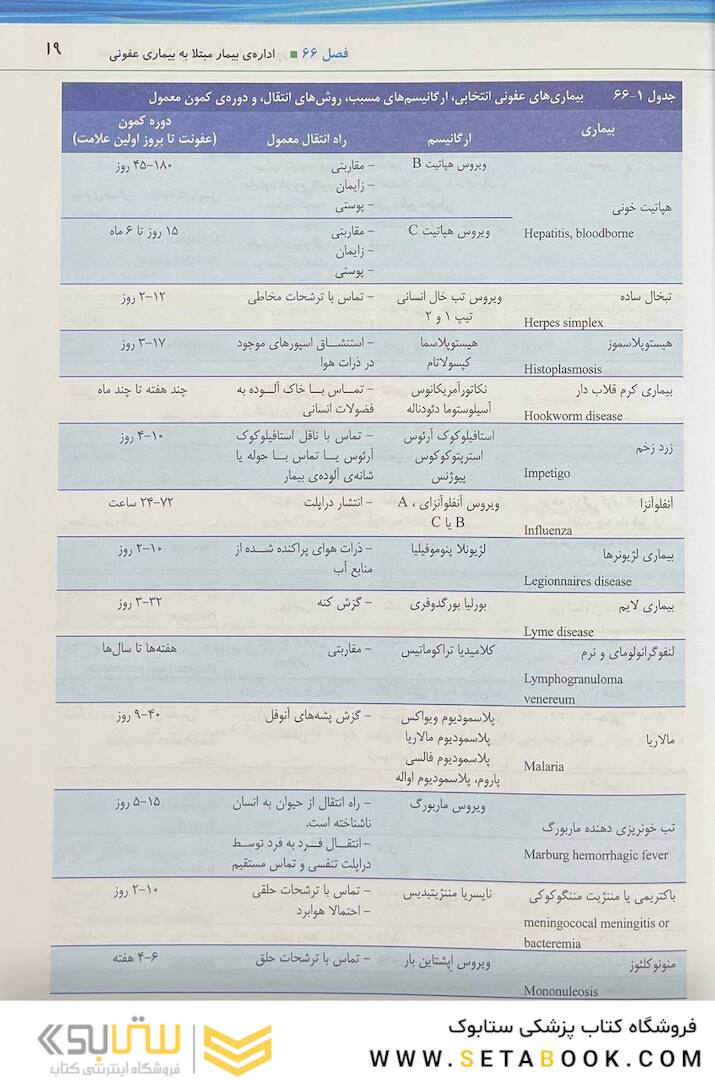 فصل ۶۶ ■ اداره‌ی بیمار مبتلا به بیماری عفونی ۱۹
جدول ۱-۶۶ بیماری‌های عفونی انتخابی، ارگانیسم‌های مسبب، روش‌های انتقال، و دوره‌ی کمون معمول
بیماری ارگانیسم راه انتقال معمول دوره کمون
(عفونت تا بروز اولین علامت)
هپاتیت خونی
Hepatitis, bloodborne
ویروس هپاتیت B
- مقاربتی
- زایمان
- پوستی
۴۵-۱۸۰ روز
ویروس هپاتیت C
- مقاربتی
- زایمان
- پوستی
۱۵ روز تا ۶ ماه
تبخال ساده
Herpes simplex
ویروس تب خال انسانی
تیپ ۱ و ۲
- تماس با ترشحات مخاطی
۲-۱۲ روز
هیستوپلاسموز
Histoplasmosis
هیستوپلاسما
کپسولاتام
- استنشاق اسپورهای موجود
در ذرات هوا
۳-۱۷ روز
بیماری کرم قلاب دار
Hookworm disease
نکاتورآمریکانوس
آسیلوستوما دئودناله
- تماس با خاک آلوده به
فضولات انسانی
چند هفته تا چند ماه
زرد زخم
Impetigo
استافیلوکوک آرئوس
استرپتوکوکوس
پیوژنس
- تماس با ناقل استافیلوکوک
آرئوس یا تماس با حوله یا
شانه‌ی آلوده‌ی بیمار
۴-۱۰ روز
آنفلوآنزا
Influenza
ویروس آنفلوآنزای A ،
B یا C
- انتشار دراپلت
۲۴-۷۲ ساعت
بیماری لژیونرها
Legionnaires disease
لژیونلا پنوموفیلیا
- ذرات هوای پراکنده شده از
منابع آب
۲-۱۰ روز
بیماری لایم
Lyme disease
بورلیا بورگدوفری
- گزش کنه
۳-۳۲ روز
لنفوگرانولومای و نرم
Lymphogranuloma
venereum
کلامیدیا تراکوماتیس
- مقاربتی
هفته‌ها تا سال‌ها
مالاریا
Malaria
پلاسمودیوم ویواکس
پلاسمودیوم مالاریا
پلاسمودیوم فالسی
پاروم، پلاسمودیوم اواله
- گزش پشه‌های آنوفل
۹-۴۰ روز
تب خونریزی دهنده ماربورگ
Marburg hemorrhagic fever
ویروس ماربورگ
- راه انتقال از حیوان به انسان
ناشناخته است.
- انتقال فرد به فرد توسط
دراپلت تنفسی و تماس مستقیم
۵-۱۵ روز
باکتریمی یا مننژیت مننگوکوکی
meningococal meningitis or
bacteremia
نایسریا مننژیتیدیس
- تماس با ترشحات حلقی
- احتمالا هوابرد
۲-۱۰ روز
منونوکلئوز
Mononuleosis
ویروس اپشتاین بار
- تماس با ترشحات حلق
۴-۶ هفته
فروشگاه کتاب پزشکی ستابوک
WWW.SETABOOK.COM
ستابوک
فروشگاه اینترنتی کتاب